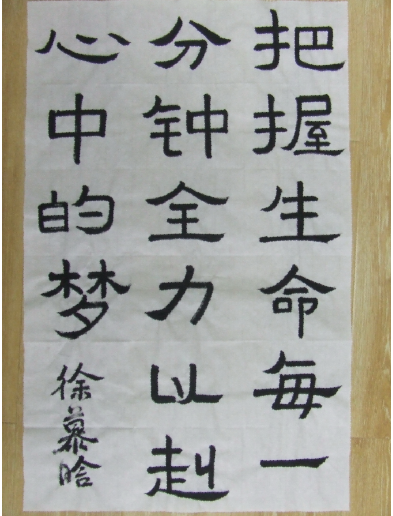 把握生命每一
分钟全力以赳
心中的梦
徐慕晗